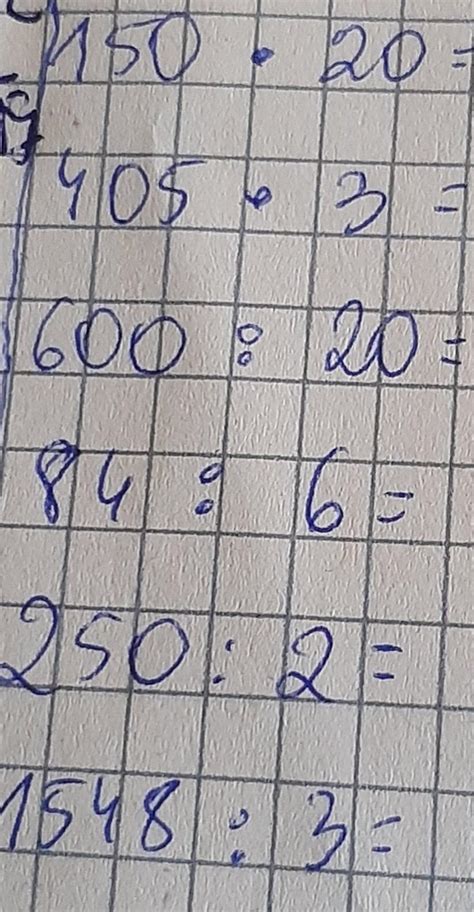 150 · 20 =
405 · 3 =
600 : 20 =
84 : 6 =
250 : 2 =
1548 : 3 =